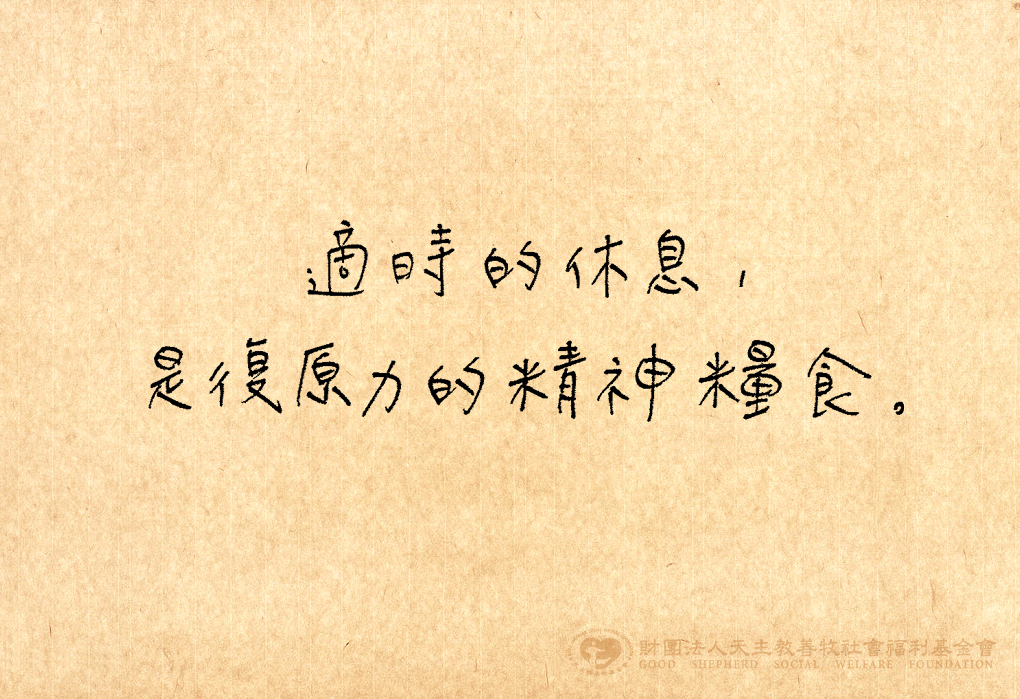 適時的休息，
是復原力的精神糧食。
財團法人天主教善牧社會福利基金會
GOOD SHEPHERD SOCIAL WELFARE FOUNDATION